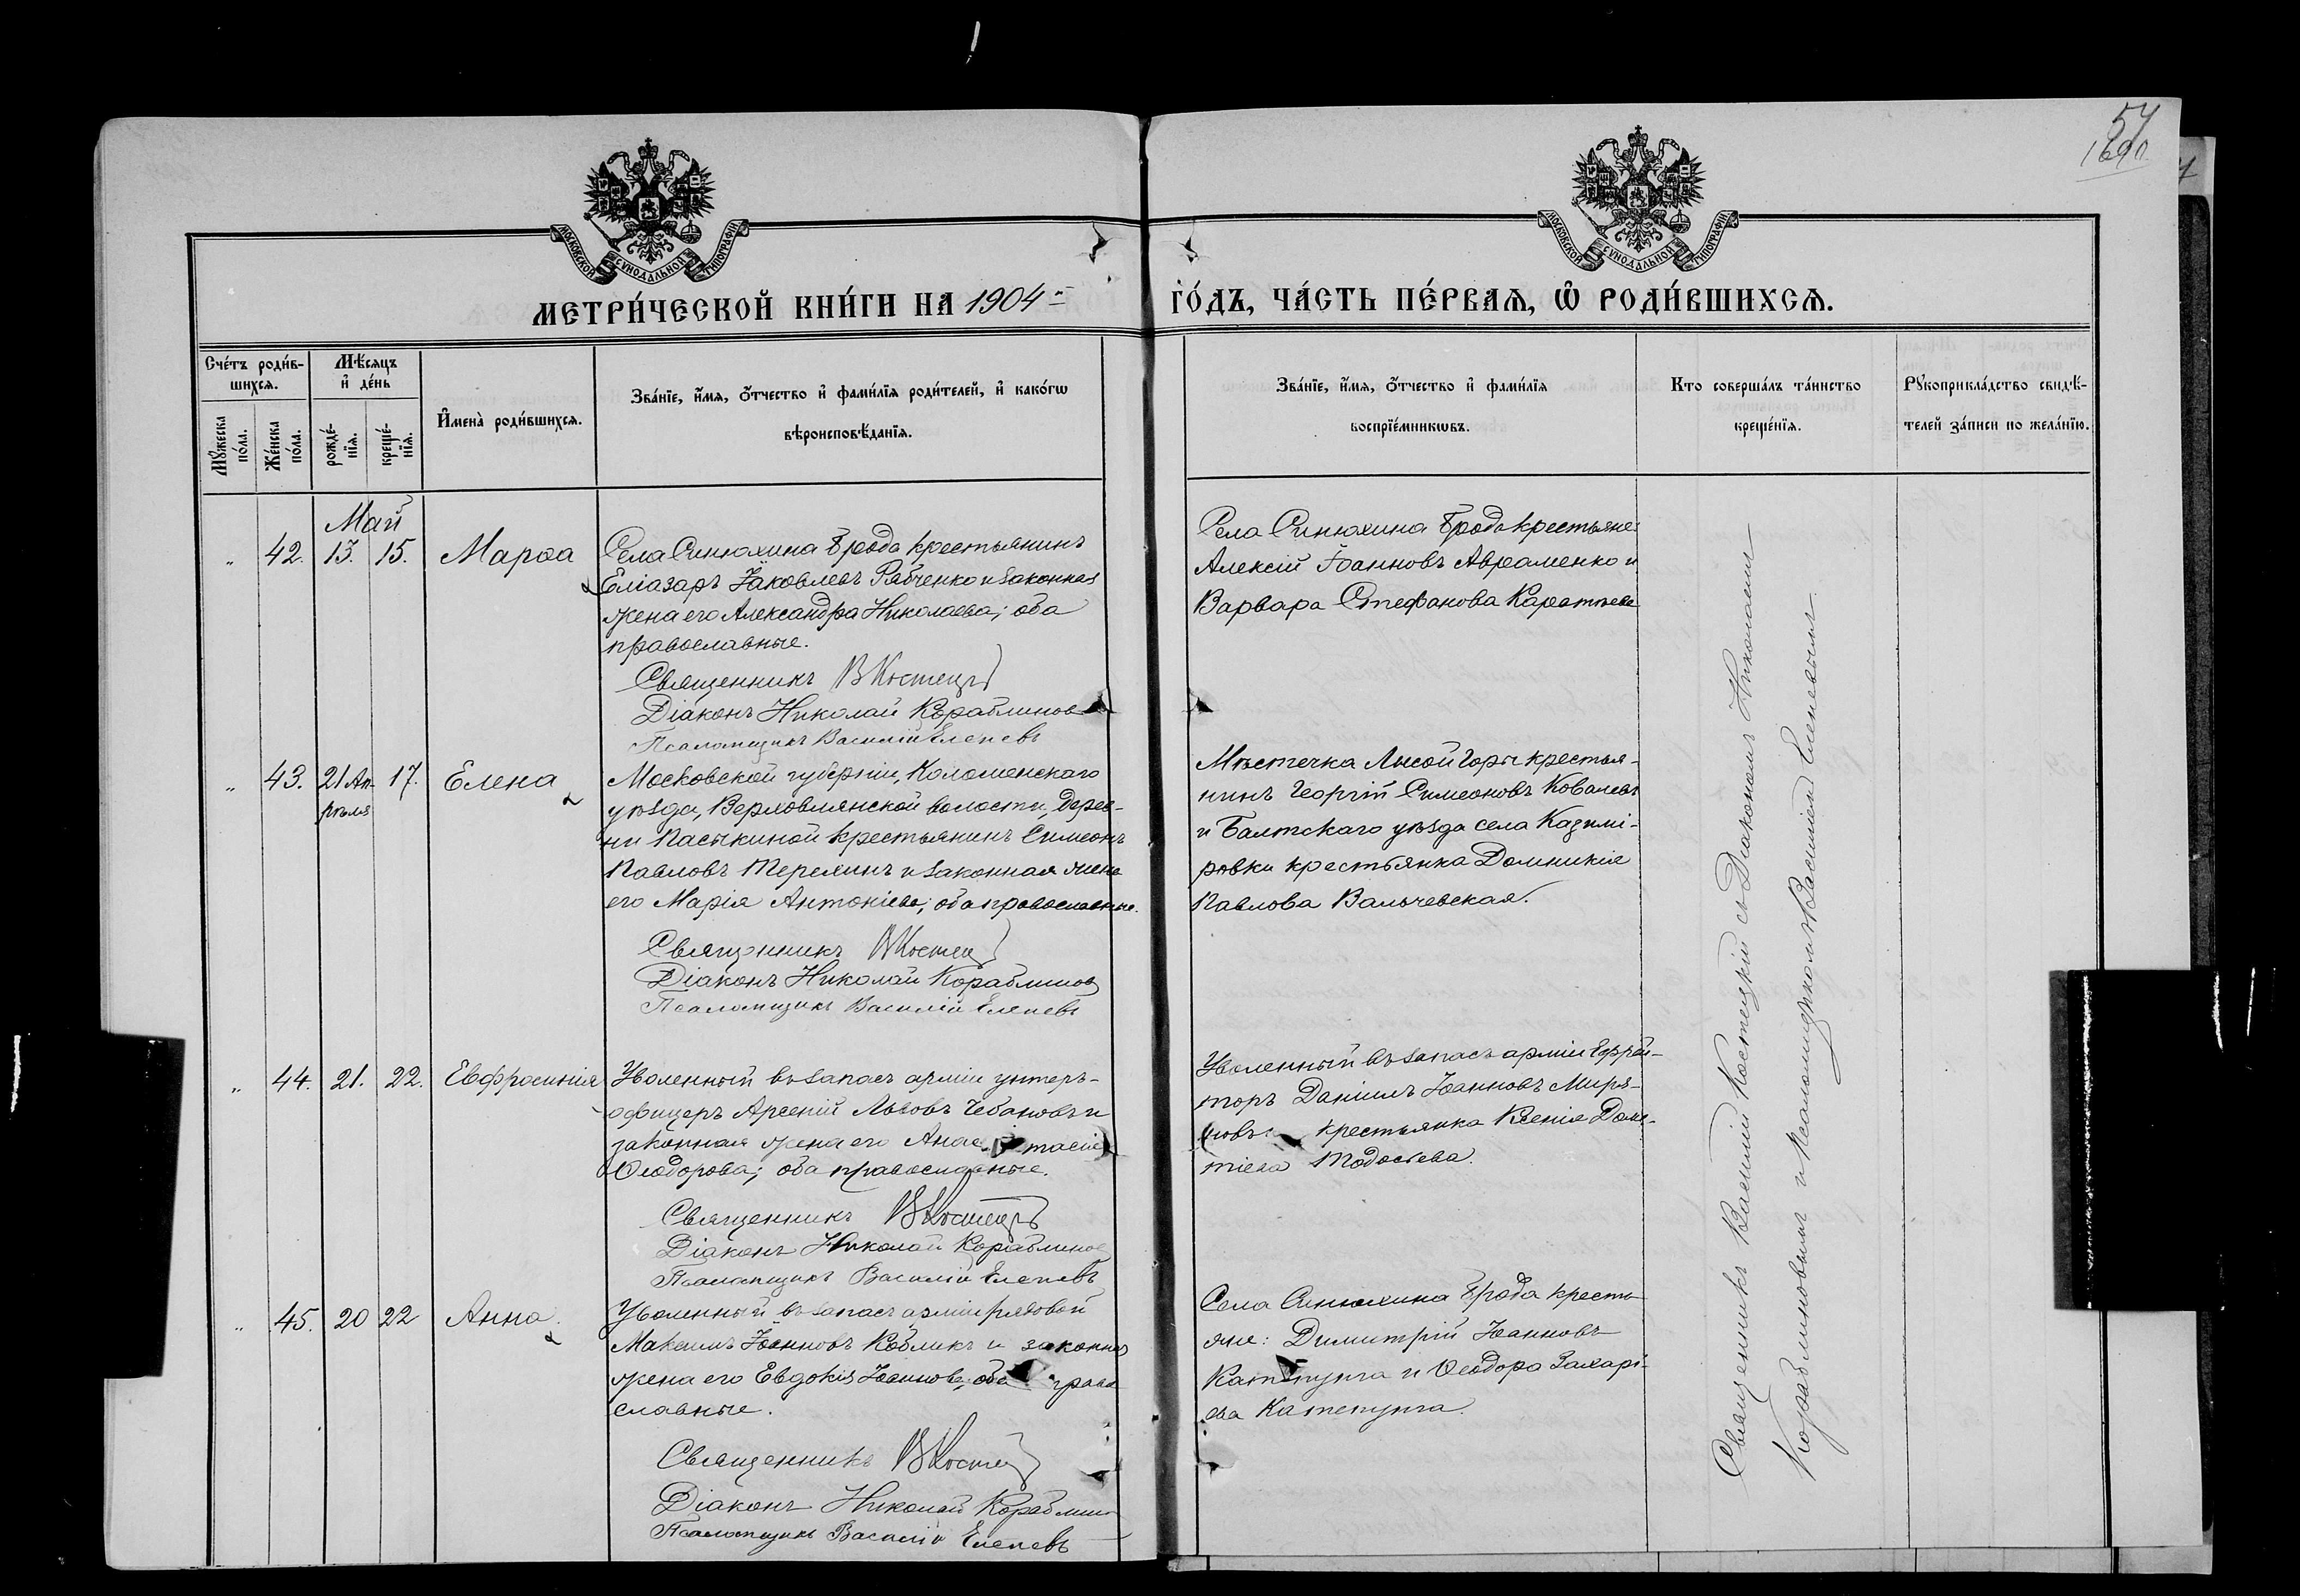 54
МОСКОВСКОЙ СѴНОДАЛЬНОЙ ТИПОГРАФІИ
МОСКОВСКОЙ СѴНОДАЛЬНОЙ ТИПОГРАФІИ
МЕТРИ́ЧЕСКОЙ КНИ́ГИ НА 1904 ГО́ДЪ, ЧА́СТЬ ПЕ́РВАѦ, Ѽ РОДИ́ВШИХСѦ.
Сче́тъ роди́в-
шихсѧ.
Мꙋ́жеска
по́ла.
Же́нска
по́ла.
Мѣ́сѧцъ
и҆ де́нь
рожде́-
нїѧ.
креще́-
нїѧ.
И҆мена̀ роди́вшихсѧ.
Зва́нїе, и҆́мѧ, ѻ҆́тчество и҆ фами́лїѧ роди́телей, и҆ како́гѡ
вѣроисповѣ́данїѧ.
Зва́нїе, и҆́мѧ, ѻ҆́тчество и҆ фами́лїѧ
воспрїе́мникѡвъ.
Кто соверша́лъ та́инство
креще́нїѧ.
Рꙋкоприкла́дство свидѣ́-
телей за́писи по жела́нїю.
Май
" 42. 13. 15. Марѳа
Села Синюхина Брода крестьянинъ
Еліазаръ Іаковлевъ Рябченко и законная
жена его Александра Николаева; оба
православные.
Священникъ В Костец
Діаконъ Николай Кораблинов
Псаломщикъ Василій Елепевъ
Села Синюхина Брода крестьяне:
Алексій Іоанновъ Авраменко и
Варвара Стефанова
" 43. 21 Ап- 17. Елена
рѣля
Московской губерніи, Коломенскаго
уѣзда, Верховлянской волости, Дерев-
ни Пасыкиной крестьянинъ Симеонъ
Павловъ Терехинъ и законная жена
его Марія Антоніева; оба православные.
Священникъ В Костец
Діаконъ Николай Кораблинов
Псаломщикъ Василій Елепевъ
Мѣстечка Лысой Горы крестья-
нинъ Георгій Симеоновъ Ковалевъ
и Балтскаго уѣзда села Казимі-
ровки крестьянка Домникія
Павлова Вальчевская.
" 44. 21. 22. Евфросинія
Уволенный въ запасъ арміи унтеръ-
офицеръ Арсеній Львовъ Чебановъ и
законная жена его Анас тасія
Ѳеодорова; оба православные.
Священникъ В Костец
Діаконъ Николай Кораблинов
Псаломщикъ Василій Елепевъ
Уволенный въ запасъ арміи Ефрей-
торъ Даніилъ Іоанновъ Миря-
новъ крестьянка Ксенія Доме-
тіева Тодосьева.
" 45. 20 22 Анна.
Уволенный въ запасъ арміи рядовой
Максимъ Іоанновъ Кобликъ и законная
жена его Евдокія Іоаннова; оба право
славные.
Священникъ В Костец
Діаконъ Николай Кораблин
Псаломщикъ Василій Елепевъ
Села Синюхина Брода кресть-
яне: Димитрій Іоанновъ
Катепунга и Ѳеодора Захарі-
ева Катепунга.
Священникъ Василій Костецкій съ Діакономъ Николаемъ
Кораблиновымъ и Псаломщикомъ Василіемъ Елепевымъ